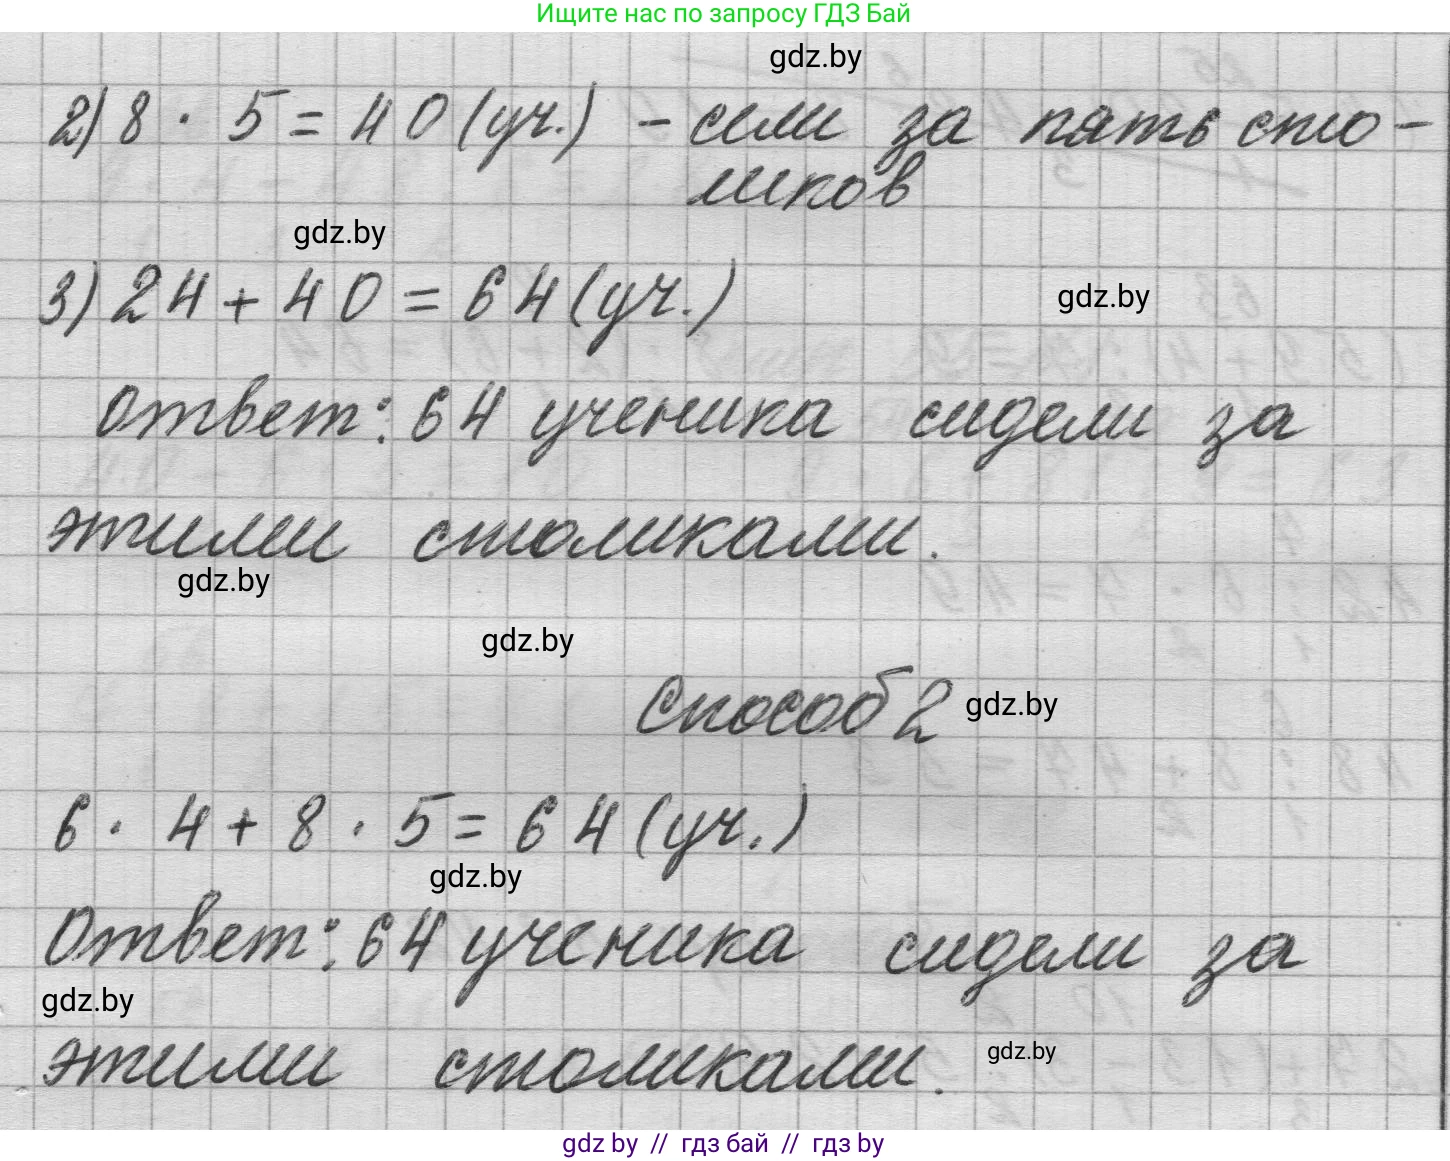 Ищите нас по запросу ГДЗ Бай
gdz.by
2) 8 · 5 = 40 (уч.) - сели за пять сто-
ликов
gdz.by
3) 24 + 40 = 64 (уч.)
gdz.by
Ответ: 64 ученика сидели за
этими столиками.
gdz.by
gdz.by
Способ 2
gdz.by
6 · 4 + 8 · 5 = 64 (уч.)
gdz.by
Ответ: 64 ученика сидели за
gdz.by
этими столиками.
gdz.by
gdz by // гдз бай // гдз by